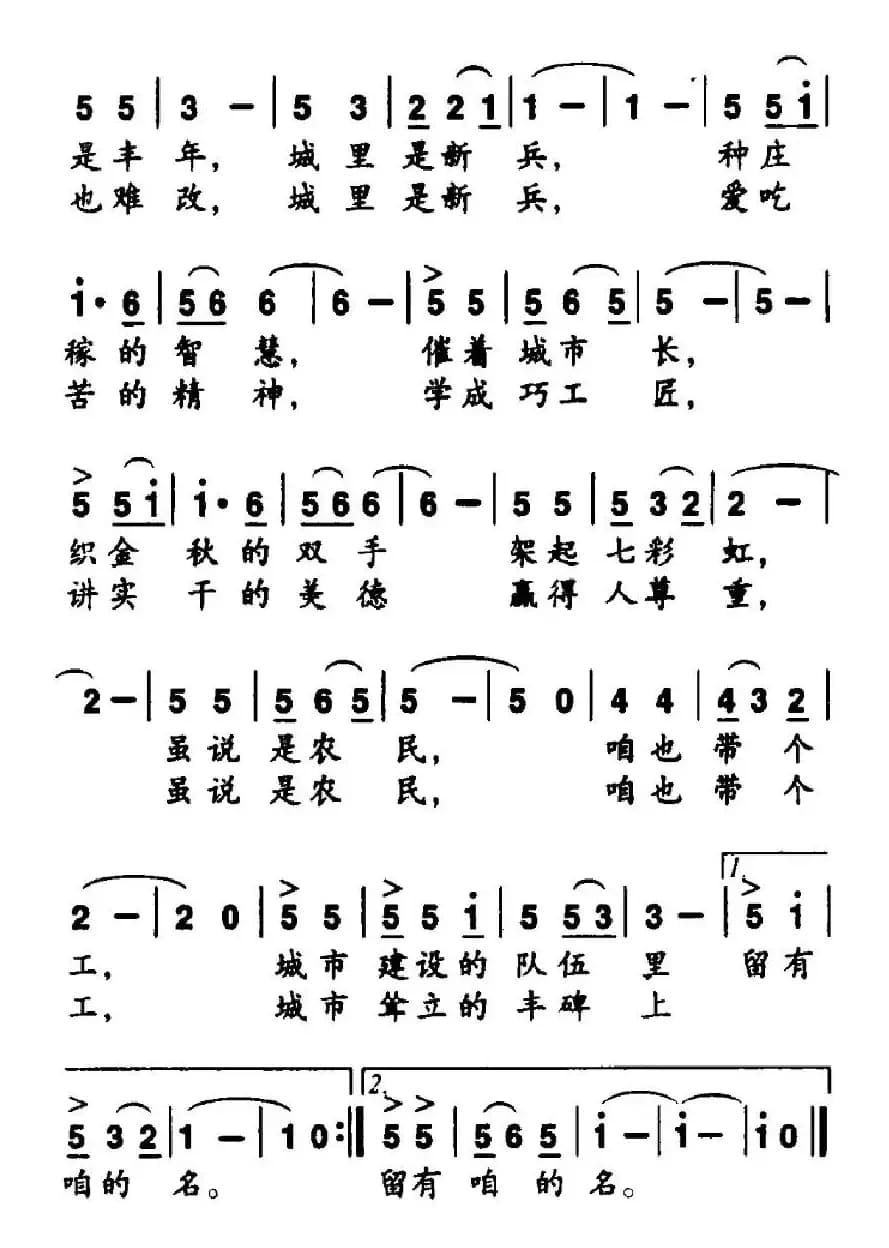 5 5 | 3 - | 5 3 | 2 2 1 | 1 - | 1 - | 5 5 i |
是丰 年， 城里是新 兵， 种庄
也难 改， 城里是新 兵， 爱吃
i · 6 | 5 6 6 | 6 - | 5 5 | 5 6 5 | 5 - | 5 - |
稼的智 慧， 催着城市 长，
苦的精 神， 学成巧工 匠，
5 5 i | i · 6 | 5 6 6 | 6 - | 5 5 | 5 3 2 | 2 - |
织金 秋的双手 架起七彩 虹，
讲实 干的美德 赢得人尊 重，
2 - | 5 5 | 5 6 5 | 5 - | 5 0 | 4 4 | 4 3 2 |
虽说是农 民， 咱也带个
虽说是农 民， 咱也带个
1.
2 - | 2 0 | 5 5 | 5 5 i | 5 5 3 | 3 - | 5 i
工， 城市建设的队伍 里 留有
工， 城市耸立的丰碑 上
2.
5 3 2 | 1 - | 1 0 :‖ 5 5 | 5 6 5 | i - | i - | i 0 ‖
咱的 名。 留有咱 的名。